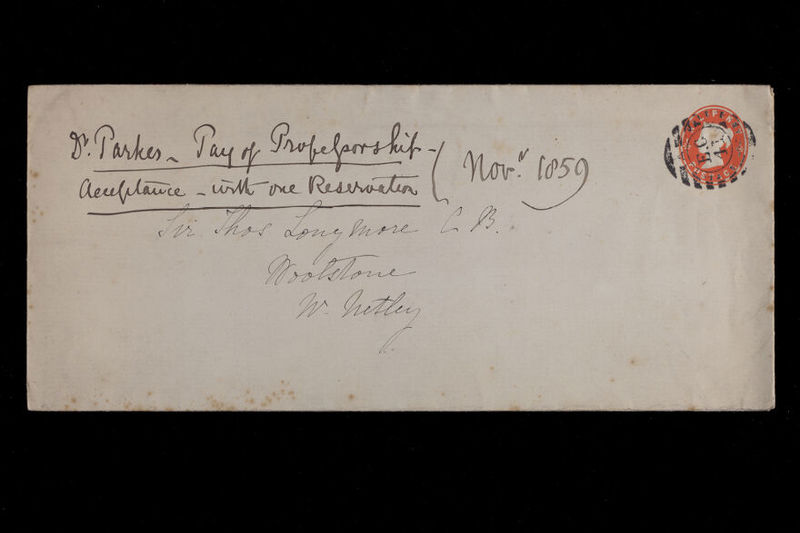 Dr. Parkes - Pay of Professorship -
Acceptance - with one Reservation
(Novr. 1859)
Sir Thos Longmore C B.
Woolstone
W. Netley